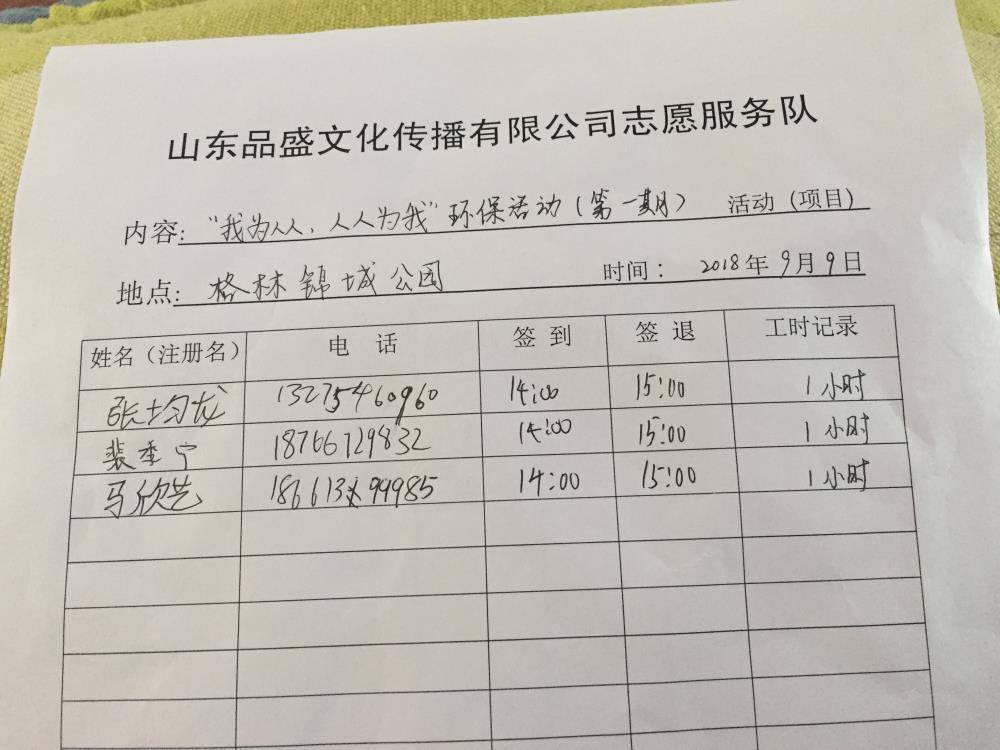 山东品盛文化传播有限公司志愿服务队
内容：“我为人人，人人为我”环保活动（第一期） 活动（项目）
地点：格林锦城公园 时间： 2018年9月9日
姓名（注册名） 电 话 签 到 签 退 工时记录
张均龙 13275460960 14:00 15:00 1小时
裴季宁 18766729832 14:00 15:00 1小时
马欣艺 14:00 15:00 1小时